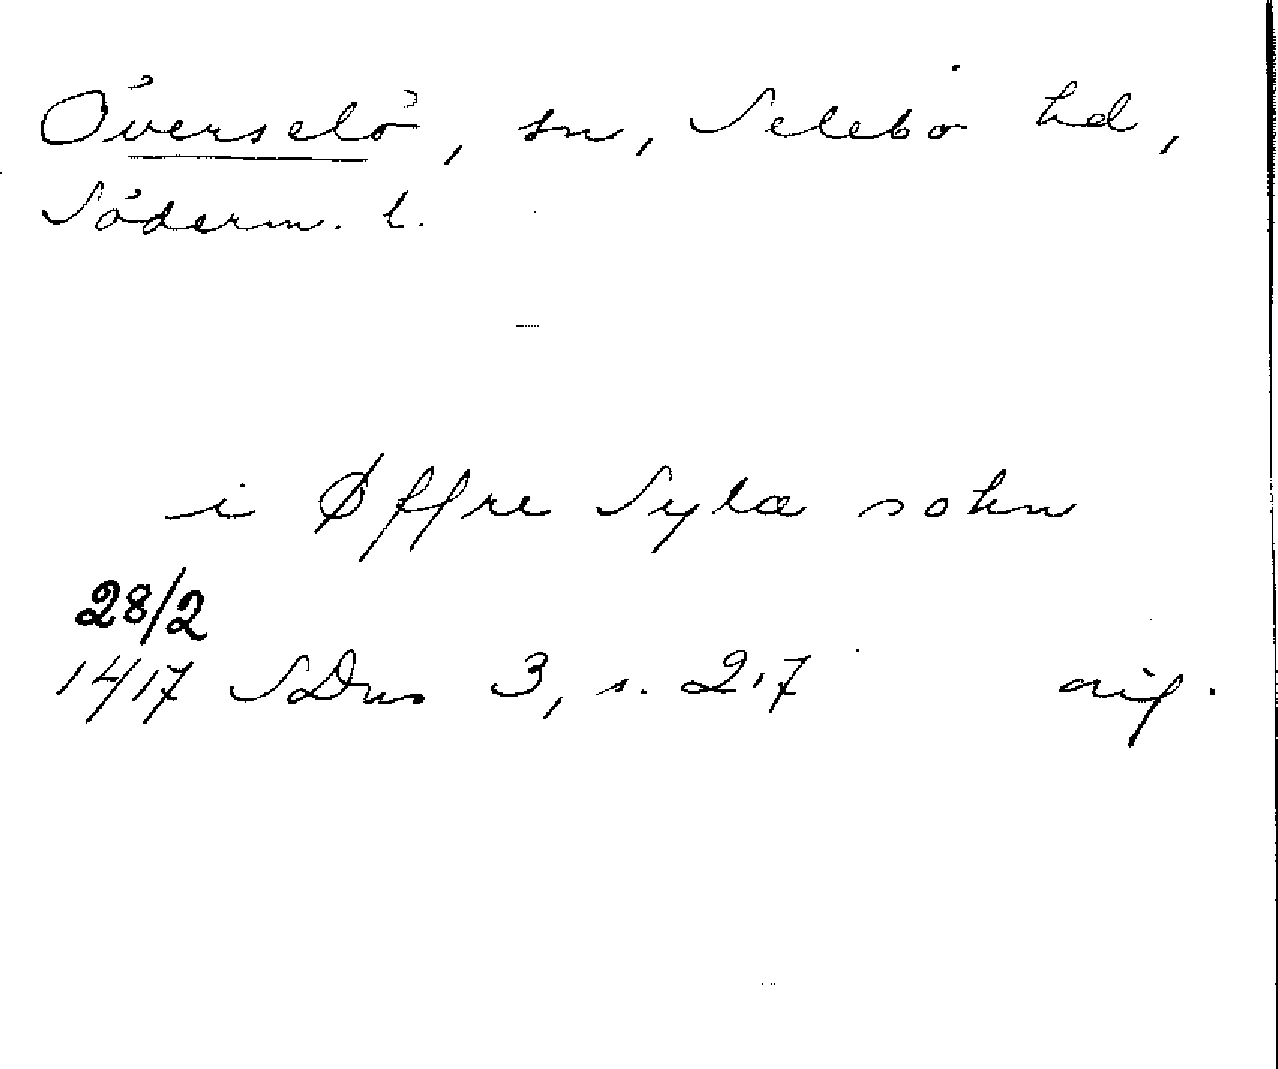 Överselö, sn, Selebo hd,
Söderm. l.
i Øffre Sylæ sokn
28/2
1417 SDns 3, s. 217 avf.